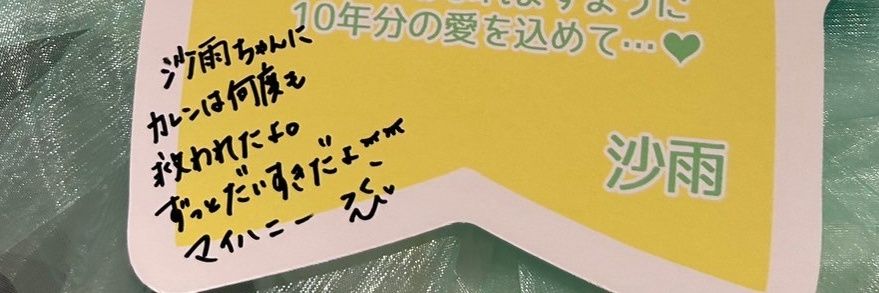 ますように
10年分の愛を込めて…♥
沙雨ちゃんに
カレンは何度も
救われたよ。
ずっとだいすきだよ
マイハニー
沙雨